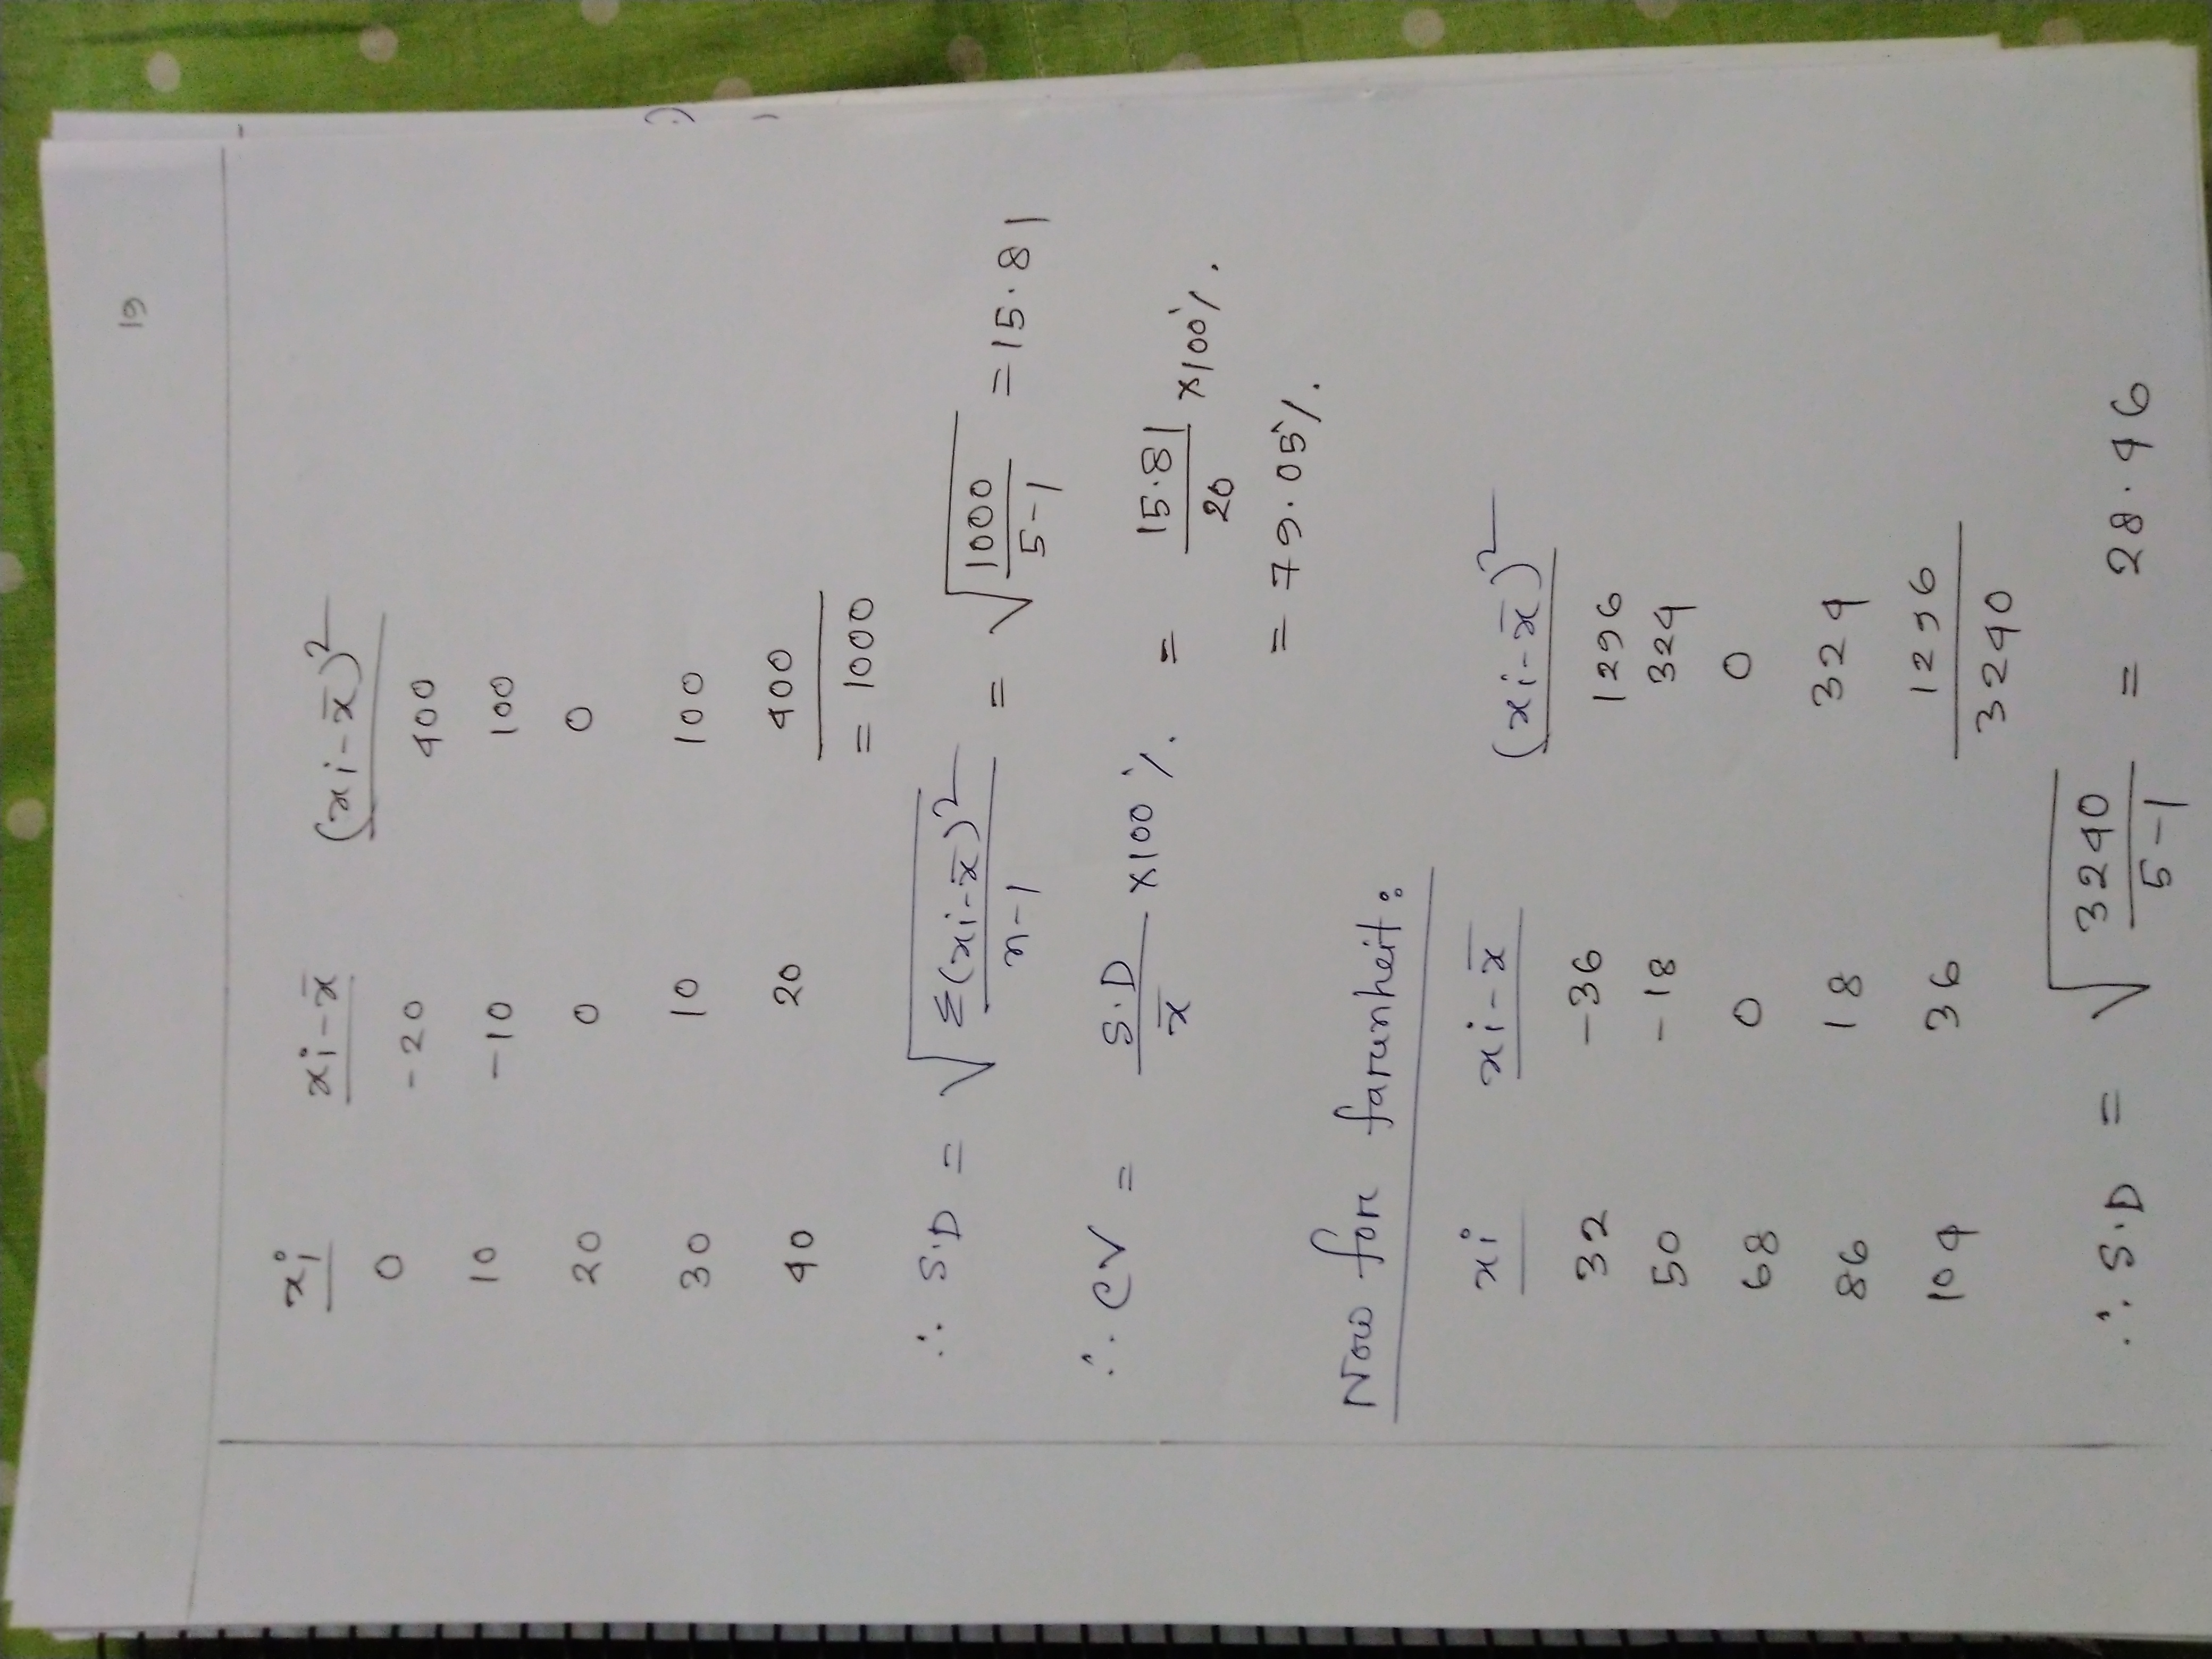 19
xi xi-x̄ (xi-x̄)²
0 -20 400
10 -10 100
20 0 0
30 10 100
40 20 400
= 1000
∴ S.D = √(Σ(xi-x̄)²/n-1) = √(1000/5-1) = 15.81
∴ CV = S.D/x̄ ×100% = 15.81/20 ×100%.
= 79.05%.
Now for farenheit:
xi xi-x̄ (xi-x̄)²
32 -36 1296
50 -18 324
68 0 0
86 18 324
104 36 1296
3240
∴ S.D = √(3240/5-1) = 28.46